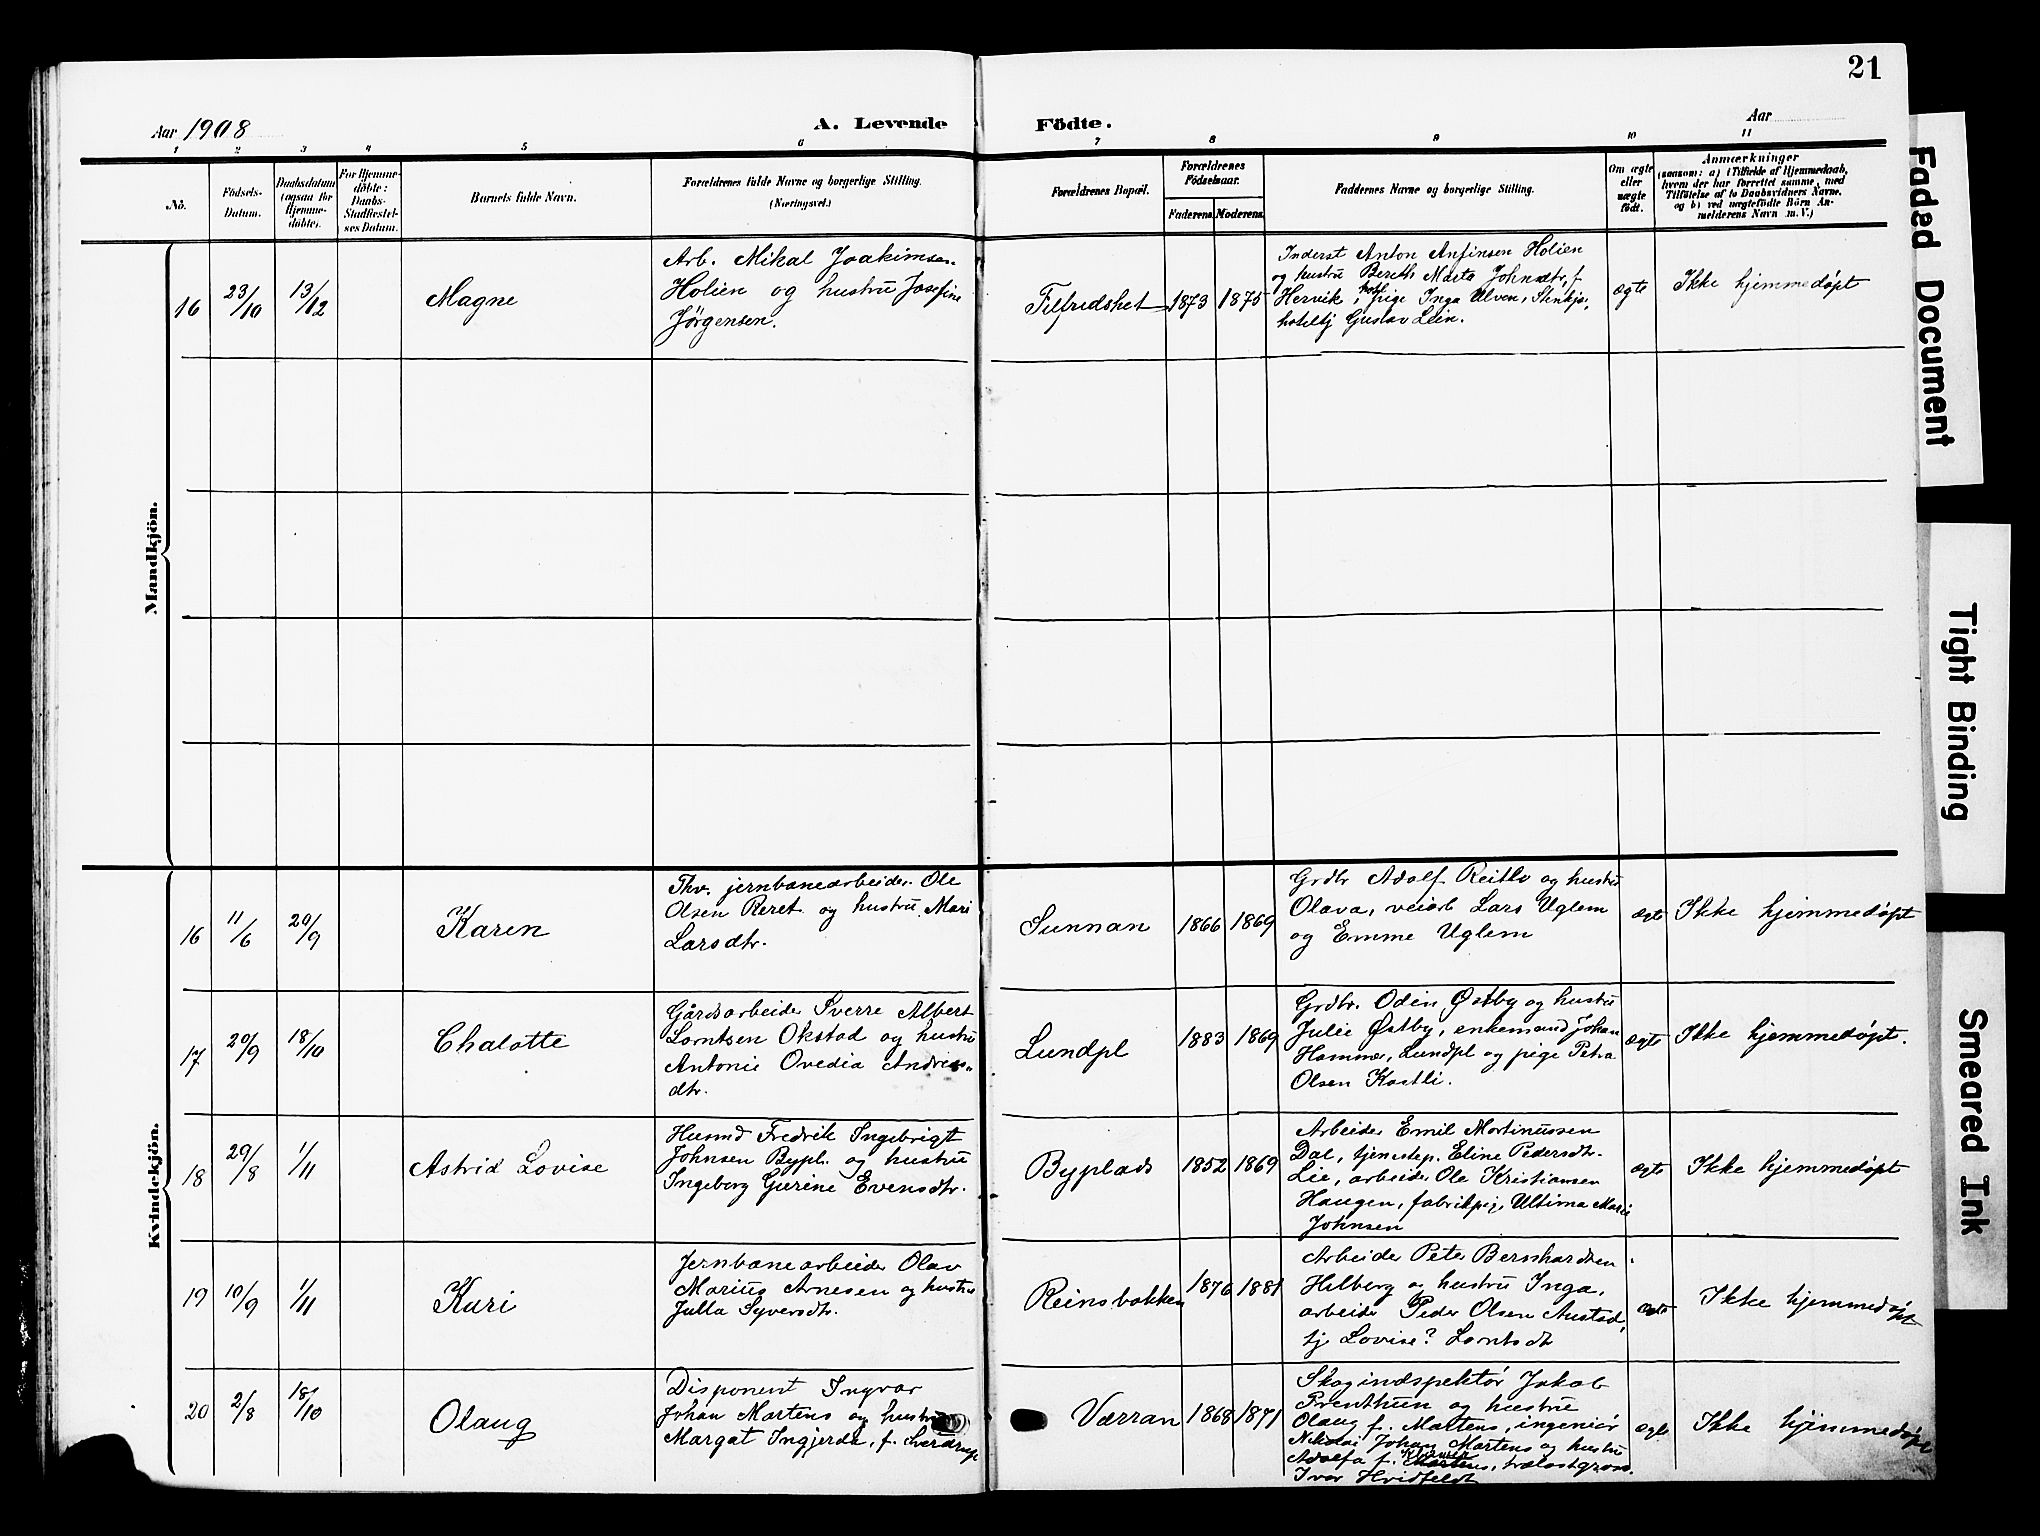 21
Aar 1908
A. Levende
Födte.
Aar
1 2 3 4 5 6 7 8 9 10 11
No.
Födsels-
Datum.
Daabsdatum
(ogsaa for
Hjemme-
döbte).
For Hjemme-
döbte:
Daabs-
Stadfæstel-
ses Datum.
Barnets fulde Navn.
Forældrenes fulde Navne og borgerlige Stilling.
(Næringsvei.)
Forældrenes Bopæl.
Forældrenes
Födselsaar.
Faderens.
Moderens.
Faddernes Navne og borgerlige Stilling.
Om ægte
eller
uægte
födt.
Anmærkninger
(saasom: a) i Tilfælde af Hjemmedaab,
hvem der har forrettet samme, med
Tilföielse af to Daabsvidners Navne,
og b) ved uægtefödte Börn An-
melderens Navn m. V.)
Mandkjön.
16
23/10
13/12
Magne
Arb. Mikal Joakimsen
Holien og hustru Josefine
Jörgensen.
Tilfredshet
1873
1875
Inderst Anton Anfinsen Holien
og hustru Bereth Marta Johnsdtr, f
Hervik, pige Inga Ulven, Stenkjær,
hoteltj Gustav Lein.
ægte
Ikke hjemmedøpt
Kvindekjön.
16
11/6
20/9
Karen
Thv. jernbanearbeider Ole
Olsen Reret og hustru Mari
Larsdtr.
Sunnan
1866
1869
Grdbr Adolf Reitlo og hustru
Olava, veiarb Lars Uglem
og Emme Uglem
ægte
Ikke hjemmedøpt
17
20/9
18/10
Chalotte
Gårdsarbeider Sverre Albert
Lorntsen Okstad og hustru
Antonie Ovedia Andreas-
dtr.
Lundpl
1883
1869
Grdbr. Odin Østby og hustru
Julie Østby, enkemand Johan
Hammer, Lundpl og pige Petra
Olsen Kastli.
ægte
Ikke hjemmedøpt.
18
29/8
1/11
Astrid Lovise
Husmd Fredrik Ingebrigt
Johnsen Bypl. og hustru
Ingeborg Gurine Evensdtr.
Byplads
1852
1869
Arbeider Emil Martinussen
Dal, tjenestep. Eline Pedersdtr.
Lie, arbeider Ole Kristiansen
Haugen, fabrikpige, Ultima Marie
Johnsen
ægte
Ikke hjemmedøpt
19
10/9
1/11
Kari
Jernbanearbeider Olav
Marius Arnesen og hustru
Julla Syversdtr.
Reinsbakken
1876
1881
Arbeider Peter Bernhardsen
Helberg og hustru Inga,
arbeider Peder Olsen Austad,
tj Lovise? Lorntsdtr
ægte
Ikke hjemmedøpt
20
2/8
18/10
Olaug
Disponent Ingvar
Johan Martens og hustru
Margat Ingjerda, f. Sverdrup
Værran
1868
1871
Skogindspektør Jakob
Prenthun og hustru
Olaug f. Martens, ingeniør
Nikolai Johan Martens og hustru
Adolfa f. trælastgross.
Ivar Hvidfeldt
ægte
Ikke hjemmedøpt
Faded Document
Tight Binding
Smeared Ink